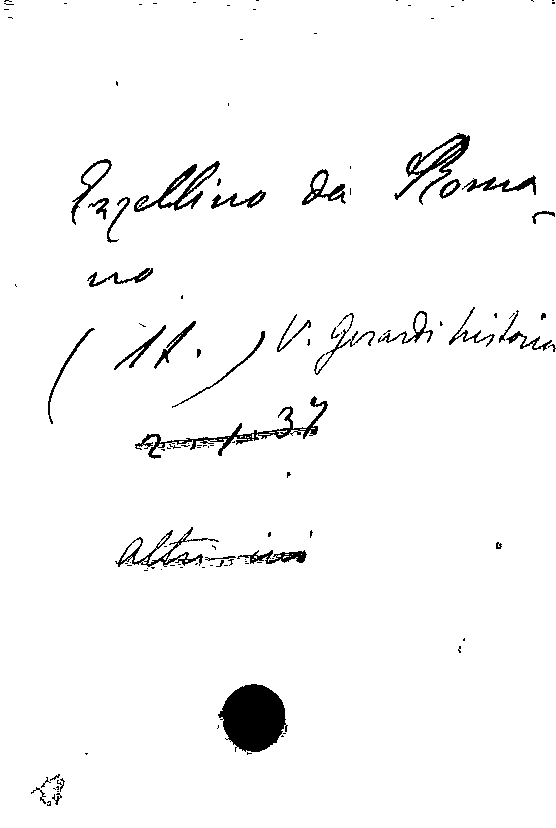 Ezzellino da Roma-
no
( St. ) V. Gerardi historia
2. 1. 37
altri ivi